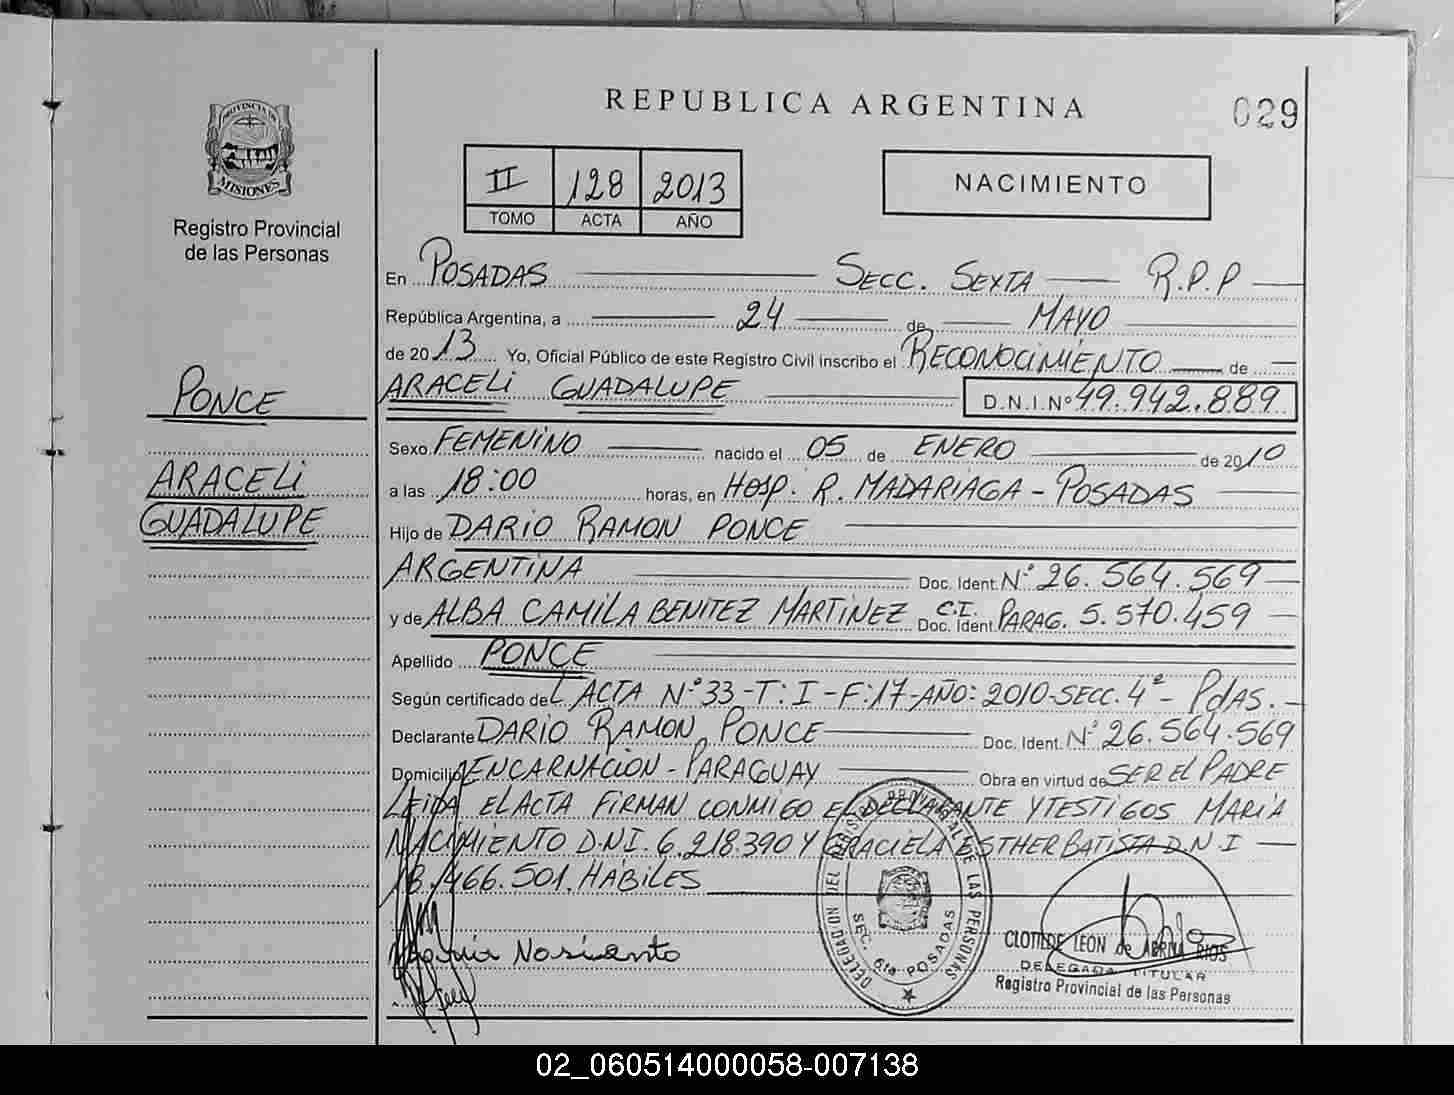 REPUBLICA ARGENTINA
029
PROVINCIA DE
MISIONES
Registro Provincial
de las Personas
II 128 2013
TOMO ACTA AÑO
NACIMIENTO
En POSADAS SECC. SEXTA R.P.P
República Argentina, a 24 de MAYO
de 2013 Yo, Oficial Público de este Registro Civil inscribo el RECONOCIMIENTO de
PONCE
ARACELI GUADALUPE D.N.I.Nº 49.942.889
Sexo FEMENINO nacido el 05 de ENERO de 2010
ARACELI
GUADALUPE
a las 18:00 horas, en HOSP. R. MADARIAGA - POSADAS
Hijo de DARIO RAMON PONCE
ARGENTINA Doc. Ident. Nº 26.564.569
y de ALBA CAMILA BENITEZ MARTINEZ C.I. Doc. Ident. PARAG. 5.570.459
Apellido PONCE
Según certificado del ACTA Nº 33-T: I-F:17-AÑO: 2010-SECC. 4ª - Pdas.
Declarante DARIO RAMON PONCE Doc. Ident. Nº 26.564.569
Domicilio ENCARNACION - PARAGUAY Obra en virtud de SER EL PADRE
LEIDA EL ACTA FIRMAN CONMIGO EL DECLARANTE Y TESTIGOS MARIA
NACIMIENTO D.N.I. 6.218.390 Y GRACIELA ESTHER BATISTA D.N.I
18.466.501. HABILES
Maria Nasimento
DELEGADO DEL REGISTRO PROVINCIAL DE LAS PERSONAS
SEC. 6ta POSADAS
CLOTILDE LEON de ABRIL RIOS
DELEGADA TITULAR
Registro Provincial de las Personas
02_060514000058-007138